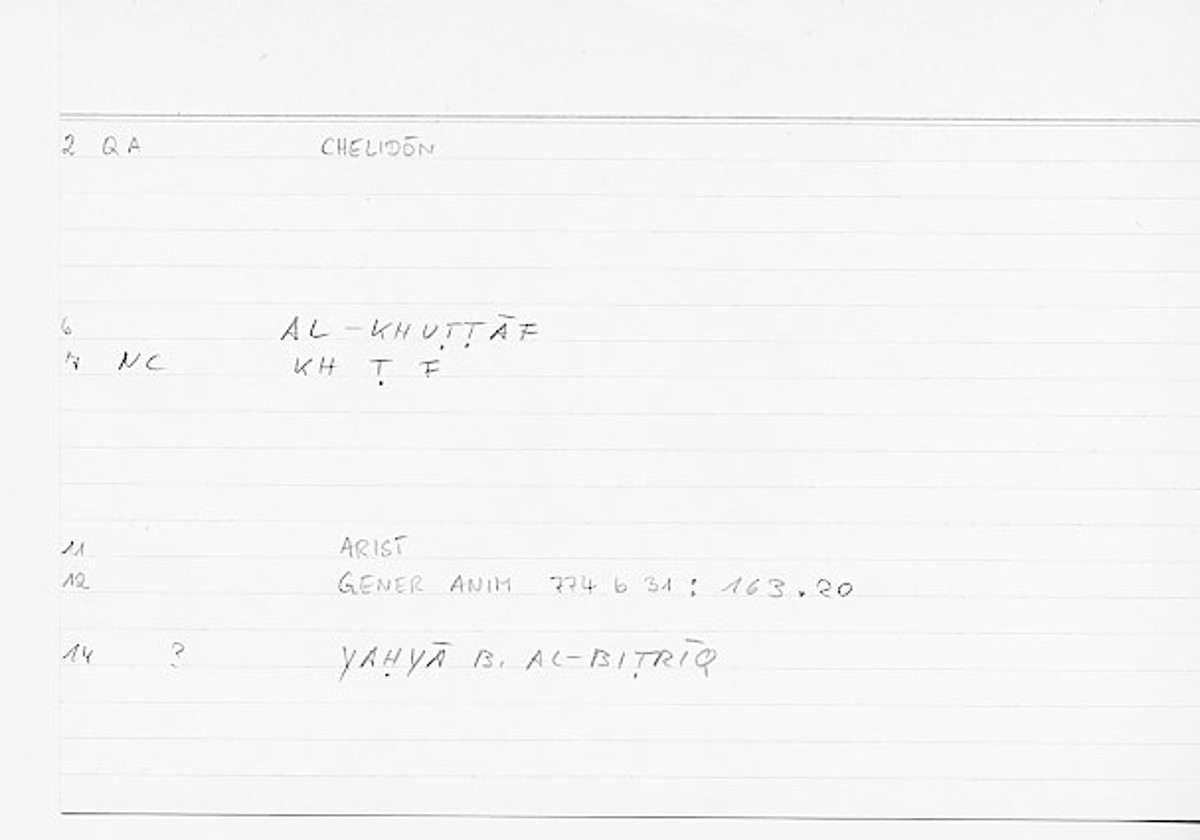 2 QA CHELIDŌN
6 AL-KHUṬṬĀF
7 NC KH Ṭ F
11 ARIST
12 GENER ANIM 774 b 31 : 163.20
14 ? YAḤYĀ B. AL-BIṬRĪQ